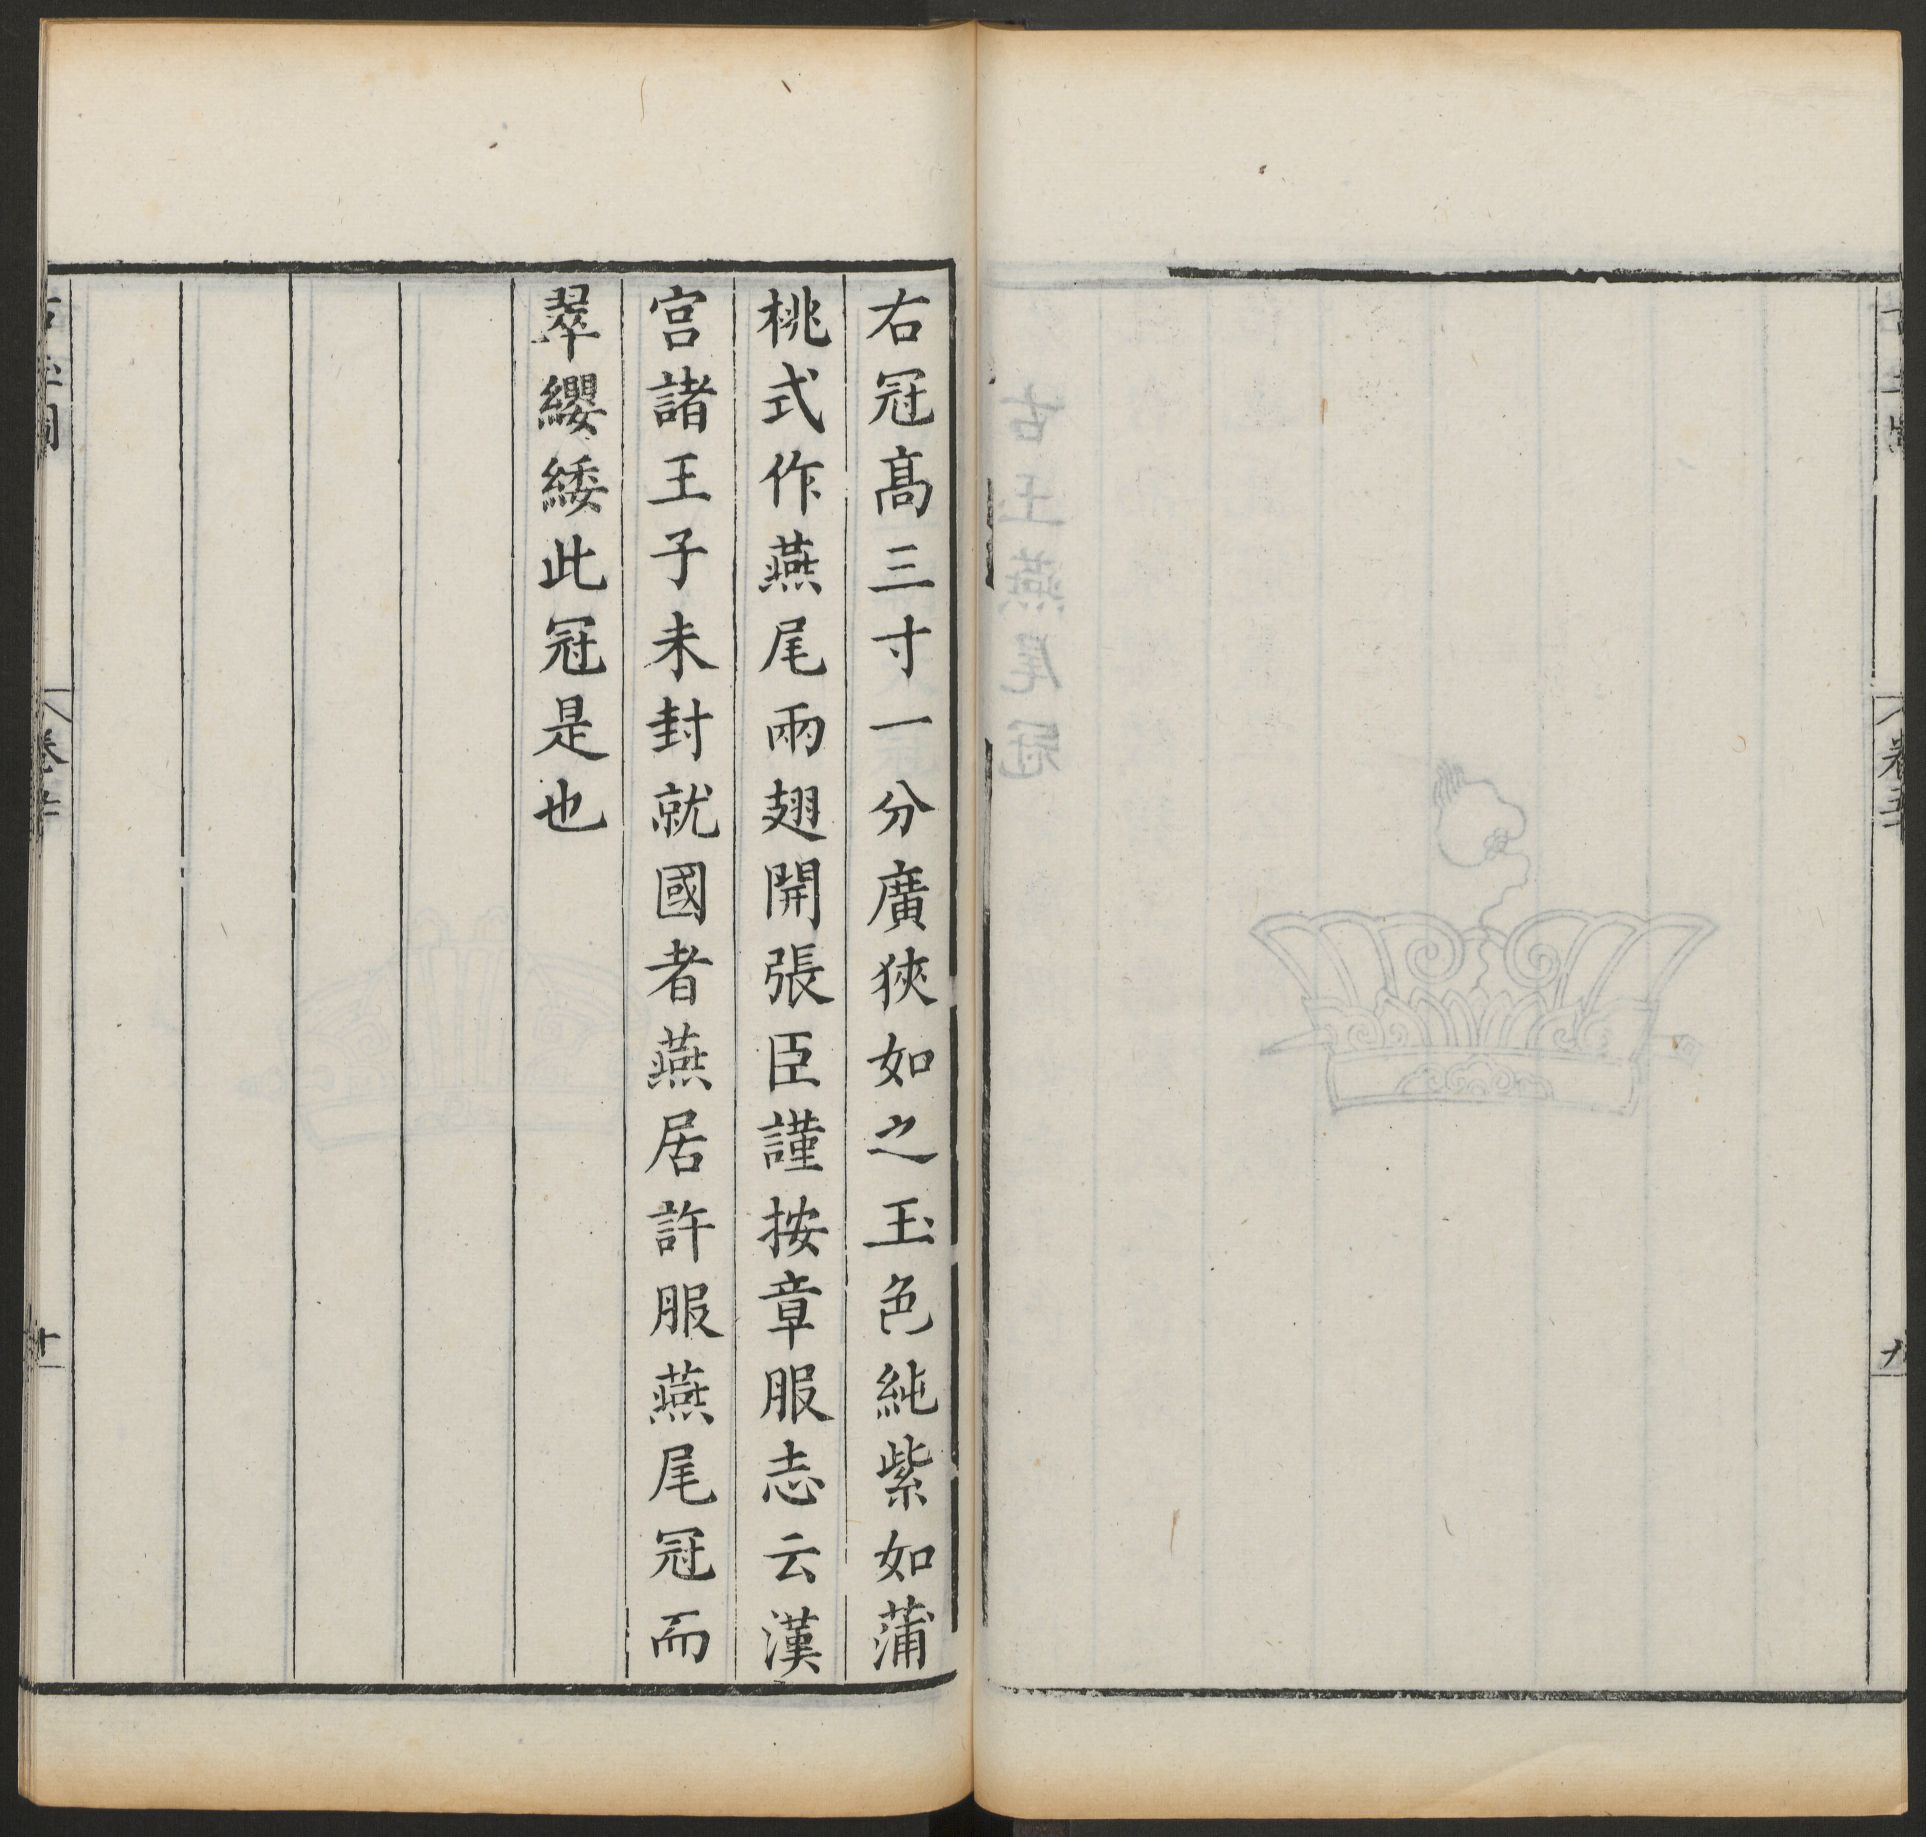 右冠高三寸一分廣狹如之玉色純紫如蒲
桃式作燕尾兩翅開張臣謹按章服志云漢
宫諸王子未封就國者燕居許服燕尾冠而
翠纓緌此冠是也
卷五
十
卷五
九
古玉燕尾冠